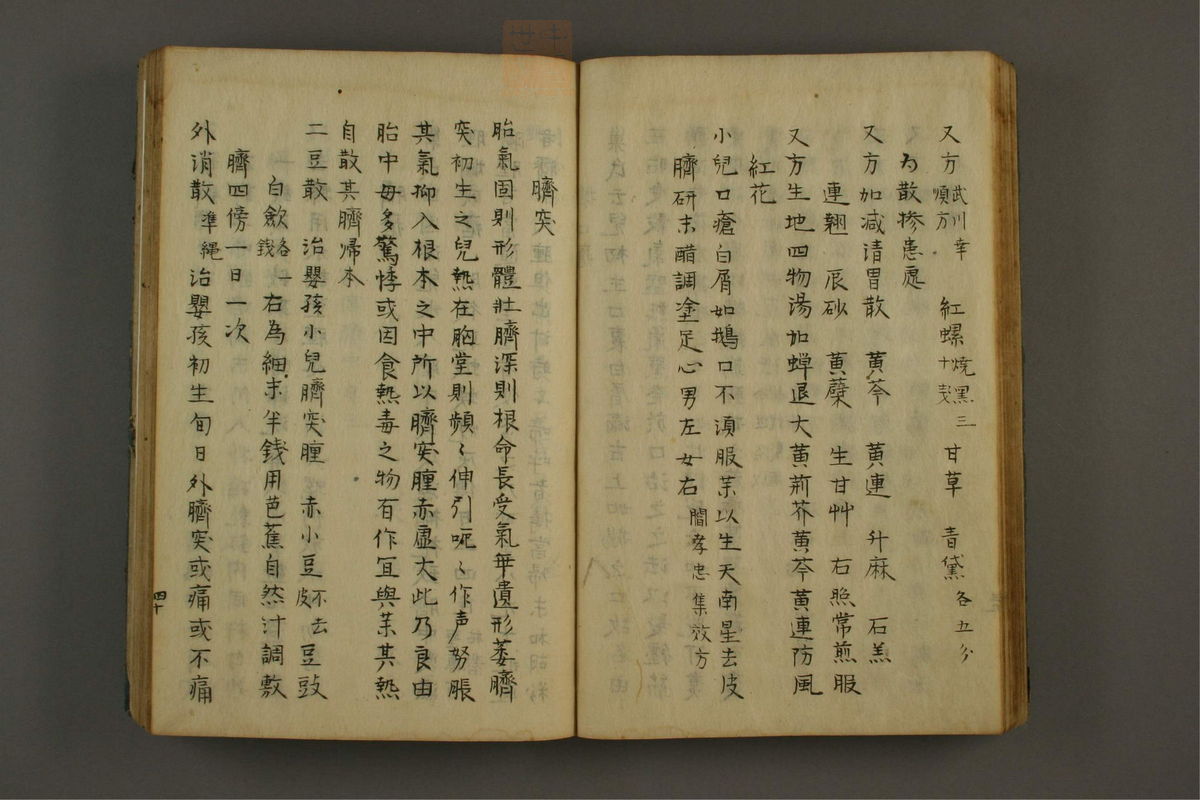 又方 武川幸順方 紅螺燒黑三十戔 甘草 青黛各五分
為散摻患處
又方加減清胃散 黄芩 黄連 升麻 石羔
連翹 辰砂 黄蘗 生甘艸 右照常煎服
又方生地四物湯加蝉退大黄荊芥黄芩黄連防風
紅花
小兒口瘡白屑如鵝口不湏服茱以生天南星去皮
臍研末醋調塗足心男左女右 閻孝忠集效方
臍突
胎氣固則形體壯臍深則根命長受氣畢遺形萎臍
突初生之兒熱在胸堂則頻〻伸引呃〻作声努脹
其氣抑入根本之中所以臍突腫赤虛大此乃良由
胎中母多驚悸或因食熱毒之物有作冝與茱其熱
自散其臍歸本
二豆散 治嬰孩小兒臍突腫 赤小豆不去皮 豆豉
白歛各一錢 右為細末半錢用芭蕉自然汁調敷
臍四傍一日一次
外消散 準縄 治嬰孩初生旬日外臍突或痛或不痛
四十